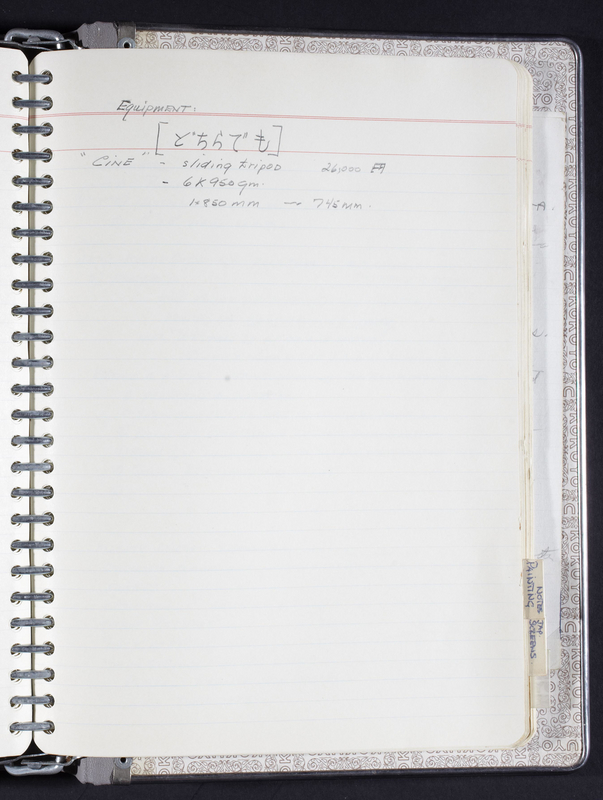 Equipment.
[どちらでも]
"CINE" - sliding tripod 26,000 円
- 6K 950 gm.
850 mm — 745 mm.
NOTES JAP. SCREENS
PAINTING
KOKUYO